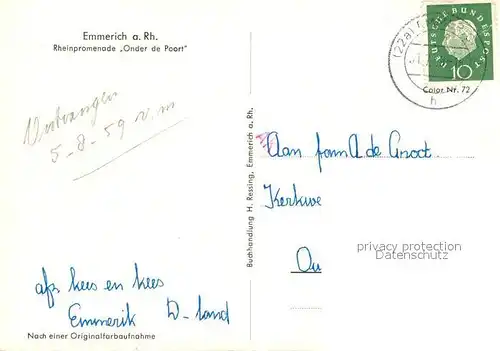 Emmerich a. Rh.
Rheinpromenade „Onder de Poort"
DEUTSCHE BUNDESPOST
10
(22a)
Color Nr. 72
h
Ontvangen
5-8-59 v.m
Buchhandlung H. Ressing, Emmerich a. Rh.
Aan fam A de Groot
Kerkwe
Ou
privacy protection
Datenschutz
afz kees en kees
Emmerik D-land
Nach einer Originalfarbaufnahme